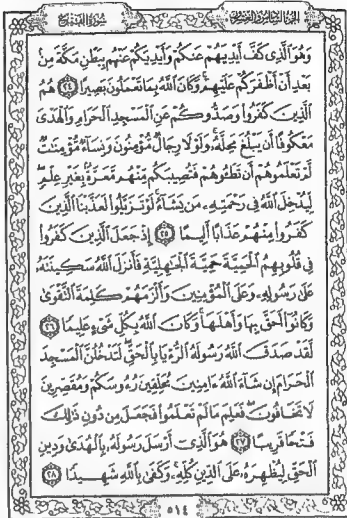 الجزء السادس والعشرون
سورة الفتح
وَهُوَ الَّذِي كَفَّ أَيْدِيَهُمْ عَنكُمْ وَأَيْدِيَكُمْ عَنْهُم بِبَطْنِ مَكَّةَ مِنۢ
بَعْدِ أَنْ أَظْفَرَكُمْ عَلَيْهِمْ ۚ وَكَانَ اللَّهُ بِمَا تَعْمَلُونَ بَصِيرًا ٢٤ هُمُ
الَّذِينَ كَفَرُوا وَصَدُّوكُمْ عَنِ الْمَسْجِدِ الْحَرَامِ وَالْهَدْيَ
مَعْكُوفًا أَن يَبْلُغَ مَحِلَّهُ ۚ وَلَوْلَا رِجَالٌ مُّؤْمِنُونَ وَنِسَاءٌ مُّؤْمِنَاتٌ
لَّمْ تَعْلَمُوهُمْ أَن تَطَئُوهُمْ فَتُصِيبَكُم مِّنْهُم مَّعَرَّةٌ بِغَيْرِ عِلْمٍ ۖ
لِّيُدْخِلَ اللَّهُ فِي رَحْمَتِهِ مَن يَشَاءُ ۚ لَوْ تَزَيَّلُوا لَعَذَّبْنَا الَّذِينَ
كَفَرُوا مِنْهُمْ عَذَابًا أَلِيمًا ٢٥ إِذْ جَعَلَ الَّذِينَ كَفَرُوا
فِي قُلُوبِهِمُ الْحَمِيَّةَ حَمِيَّةَ الْجَاهِلِيَّةِ فَأَنزَلَ اللَّهُ سَكِينَتَهُ
عَلَىٰ رَسُولِهِ وَعَلَى الْمُؤْمِنِينَ وَأَلْزَمَهُمْ كَلِمَةَ التَّقْوَىٰ
وَكَانُوا أَحَقَّ بِهَا وَأَهْلَهَا ۚ وَكَانَ اللَّهُ بِكُلِّ شَيْءٍ عَلِيمًا ٢٦
لَّقَدْ صَدَقَ اللَّهُ رَسُولَهُ الرُّءْيَا بِالْحَقِّ ۖ لَتَدْخُلُنَّ الْمَسْجِدَ
الْحَرَامَ إِن شَاءَ اللَّهُ ءَامِنِينَ مُحَلِّقِينَ رُءُوسَكُمْ وَمُقَصِّرِينَ
لَا تَخَافُونَ ۖ فَعَلِمَ مَا لَمْ تَعْلَمُوا فَجَعَلَ مِن دُونِ ذَٰلِكَ
فَتْحًا قَرِيبًا ٢٧ هُوَ الَّذِي أَرْسَلَ رَسُولَهُ بِالْهُدَىٰ وَدِينِ
الْحَقِّ لِيُظْهِرَهُ عَلَى الدِّينِ كُلِّهِ ۚ وَكَفَىٰ بِاللَّهِ شَهِيدًا ٢٨
٥١٤